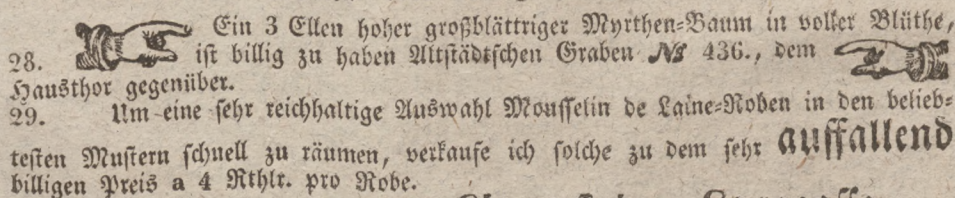 Ein 3 Ellen hoher großblättriger Myrthen=Baum in voller Blüthe,
28. ist billig zu haben Altstädtschen Graben No 436., dem
Hausthor gegenüber.
29. Um eine sehr reichhaltige Auswahl Mousselin de Laine=Roben in den belieb=
testen Mustern schnell zu räumen, verkaufe ich solche zu dem sehr auffallend
billigen Preis a 4 Rthlr. pro Robe.